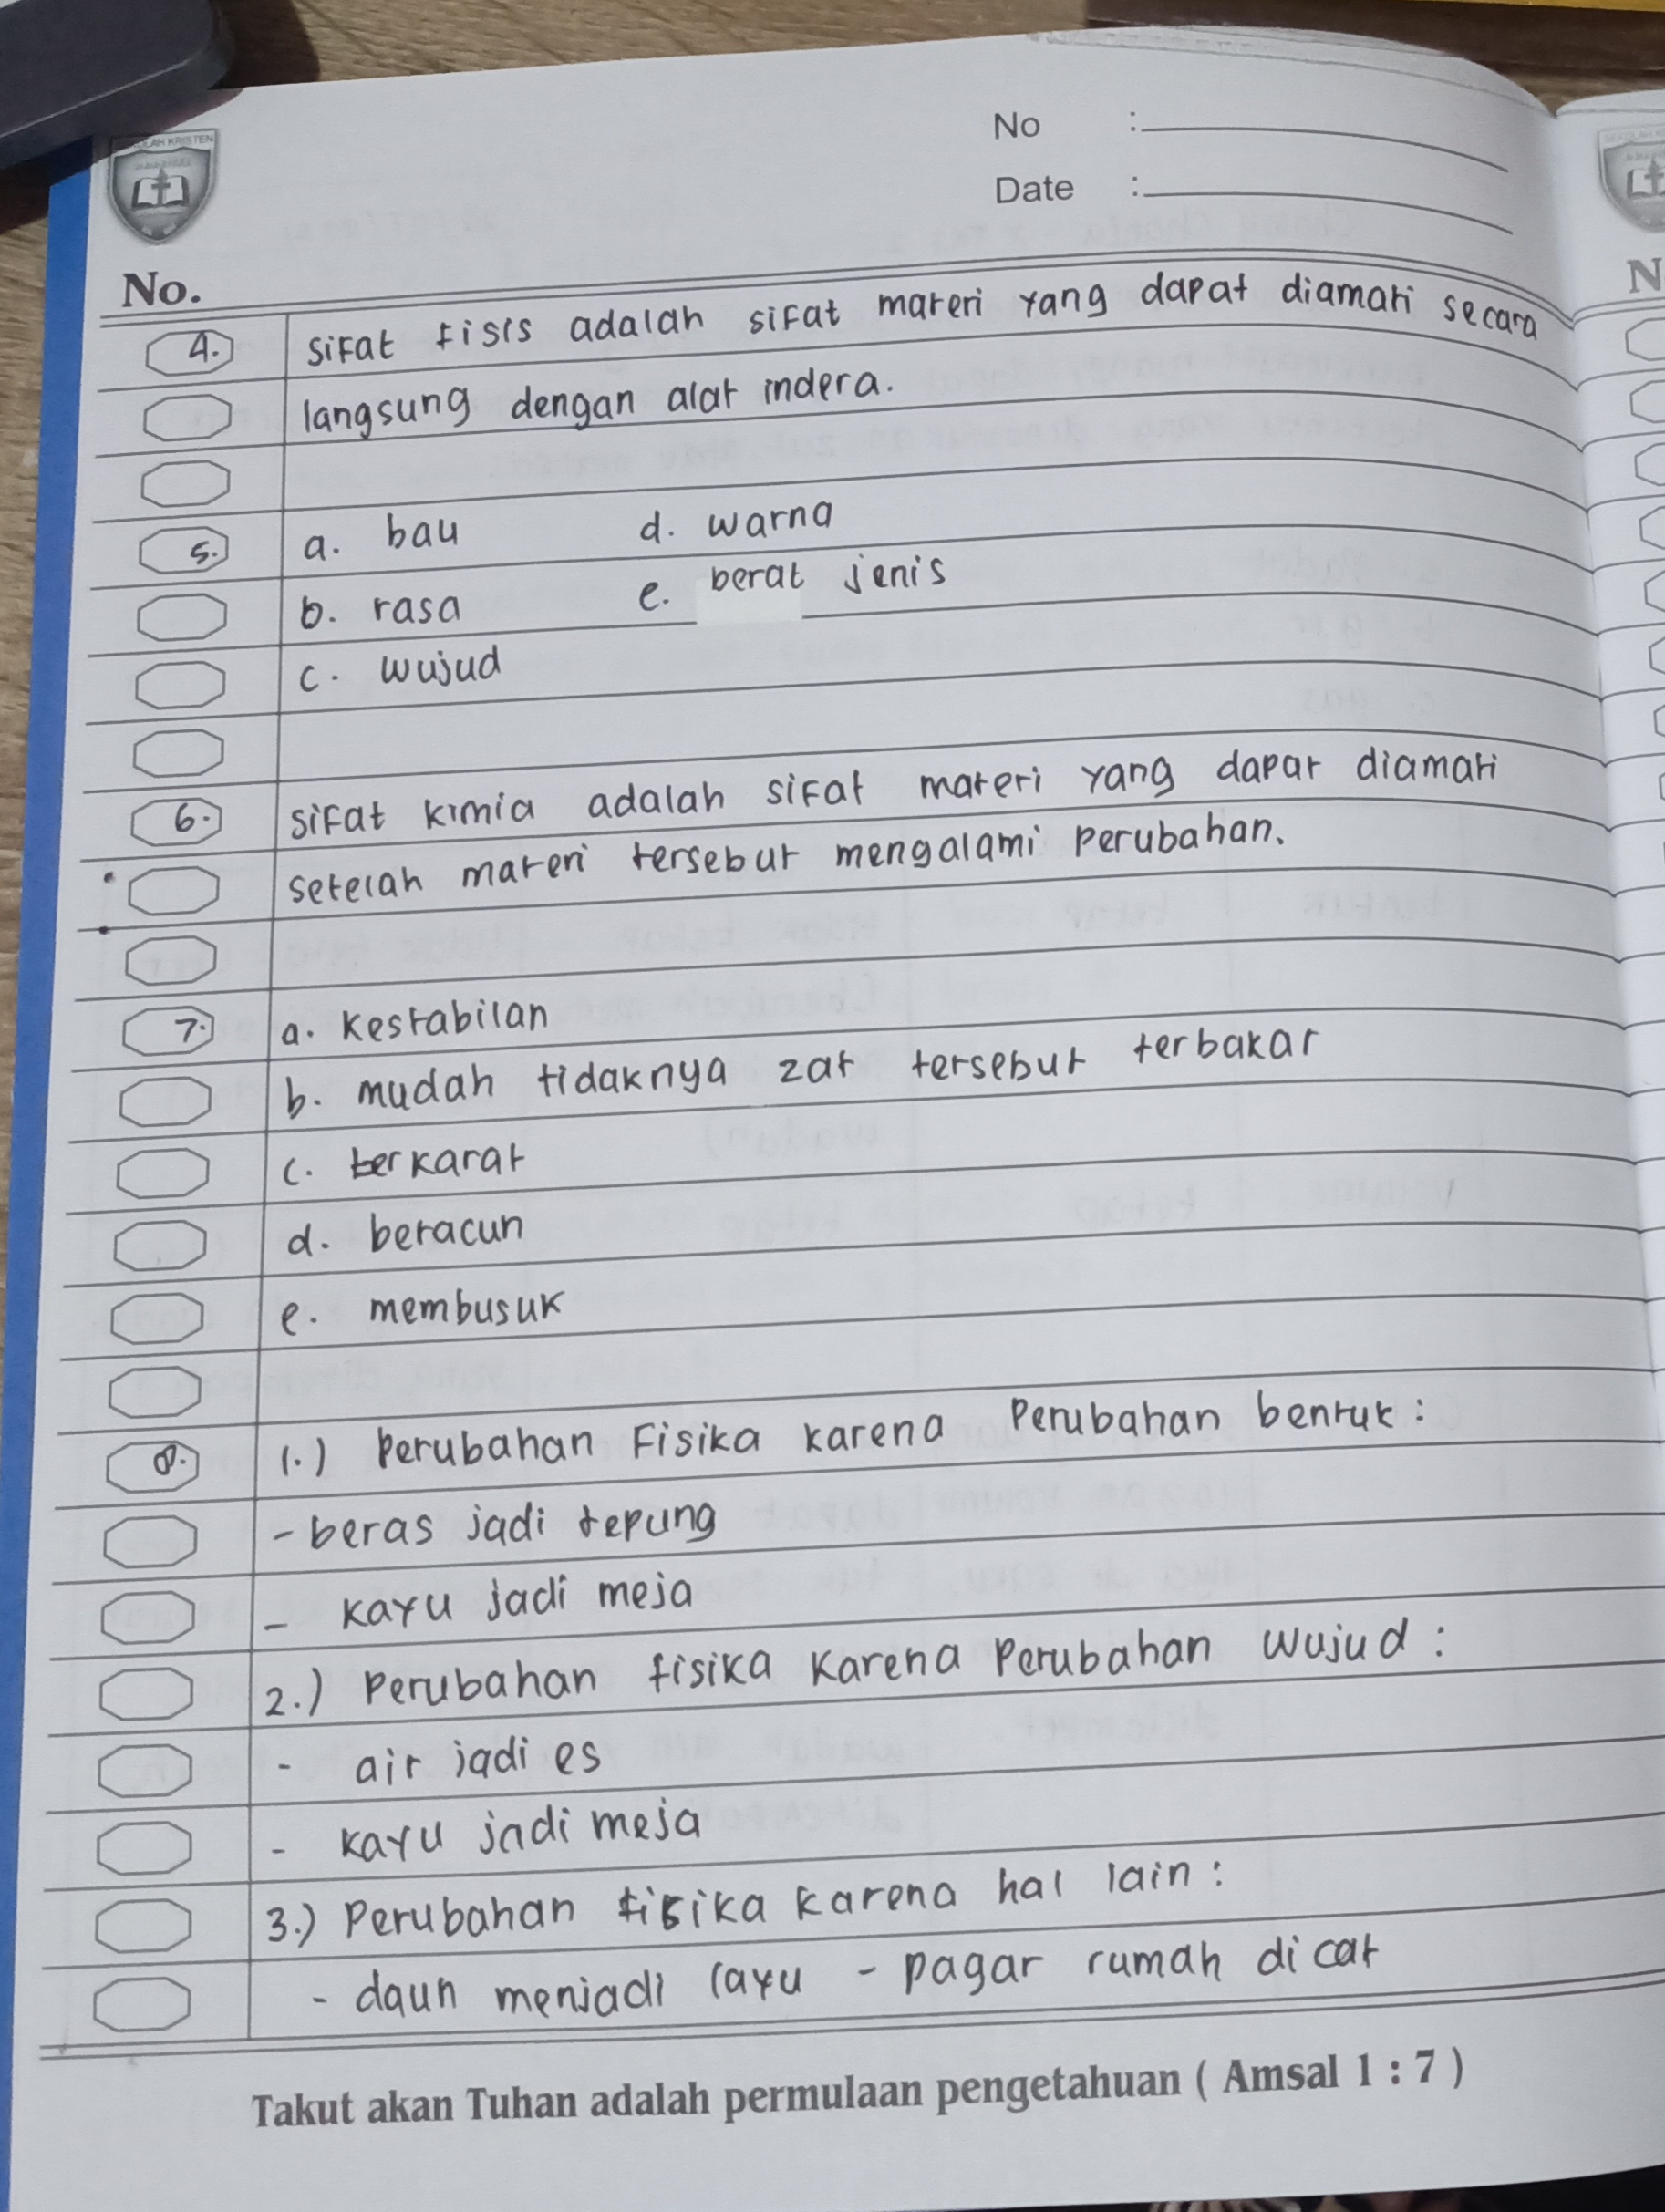 SEKOLAH KRISTEN
No :
Date :
No.
4. Sifat fisis adalah sifat materi yang dapat diamati secara
langsung dengan alat indera.
5. a. bau d. warna
b. rasa e. berat jenis
c. wujud
6. Sifat kimia adalah sifat materi yang dapat diamati
setelah materi tersebut mengalami perubahan.
7. a. Kestabilan
b. mudah tidaknya zat tersebut terbakar
c. berkarat
d. beracun
e. membusuk
8. 1.) Perubahan Fisika karena Perubahan bentuk :
- beras jadi tepung
- kayu jadi meja
2.) Perubahan fisika karena Perubahan wujud :
- air jadi es
- kayu jadi meja
3.) Perubahan fisika karena hal lain :
- daun menjadi layu - pagar rumah di cat
Takut akan Tuhan adalah permulaan pengetahuan ( Amsal 1 : 7 )